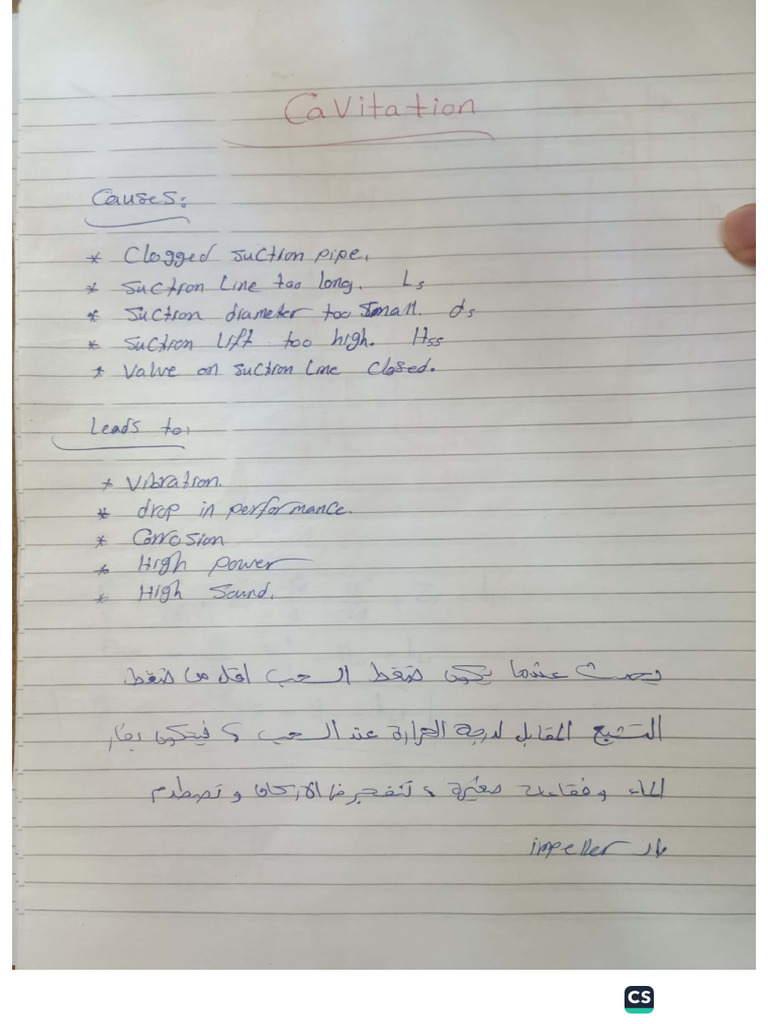 Cavitation
Causes:
* Clogged suction pipe.
* Suction Line too long. Ls
* Suction diameter too small. ds
* Suction Lift too high. Hss
* Valve on suction Line Closed.
Leads to,
* Vibration.
* drop in performance.
* Corrosion
* High power
* High Sound.
يحدث عندما يكون ضغط السحب اقل من ضغط
التشبع المقابل لدرجة الحرارة عند السحب ؟ فيتكون بخار
الماء وفقاعات صغيرة ، تنفجر وتصطدم
بالـ impeller
CS